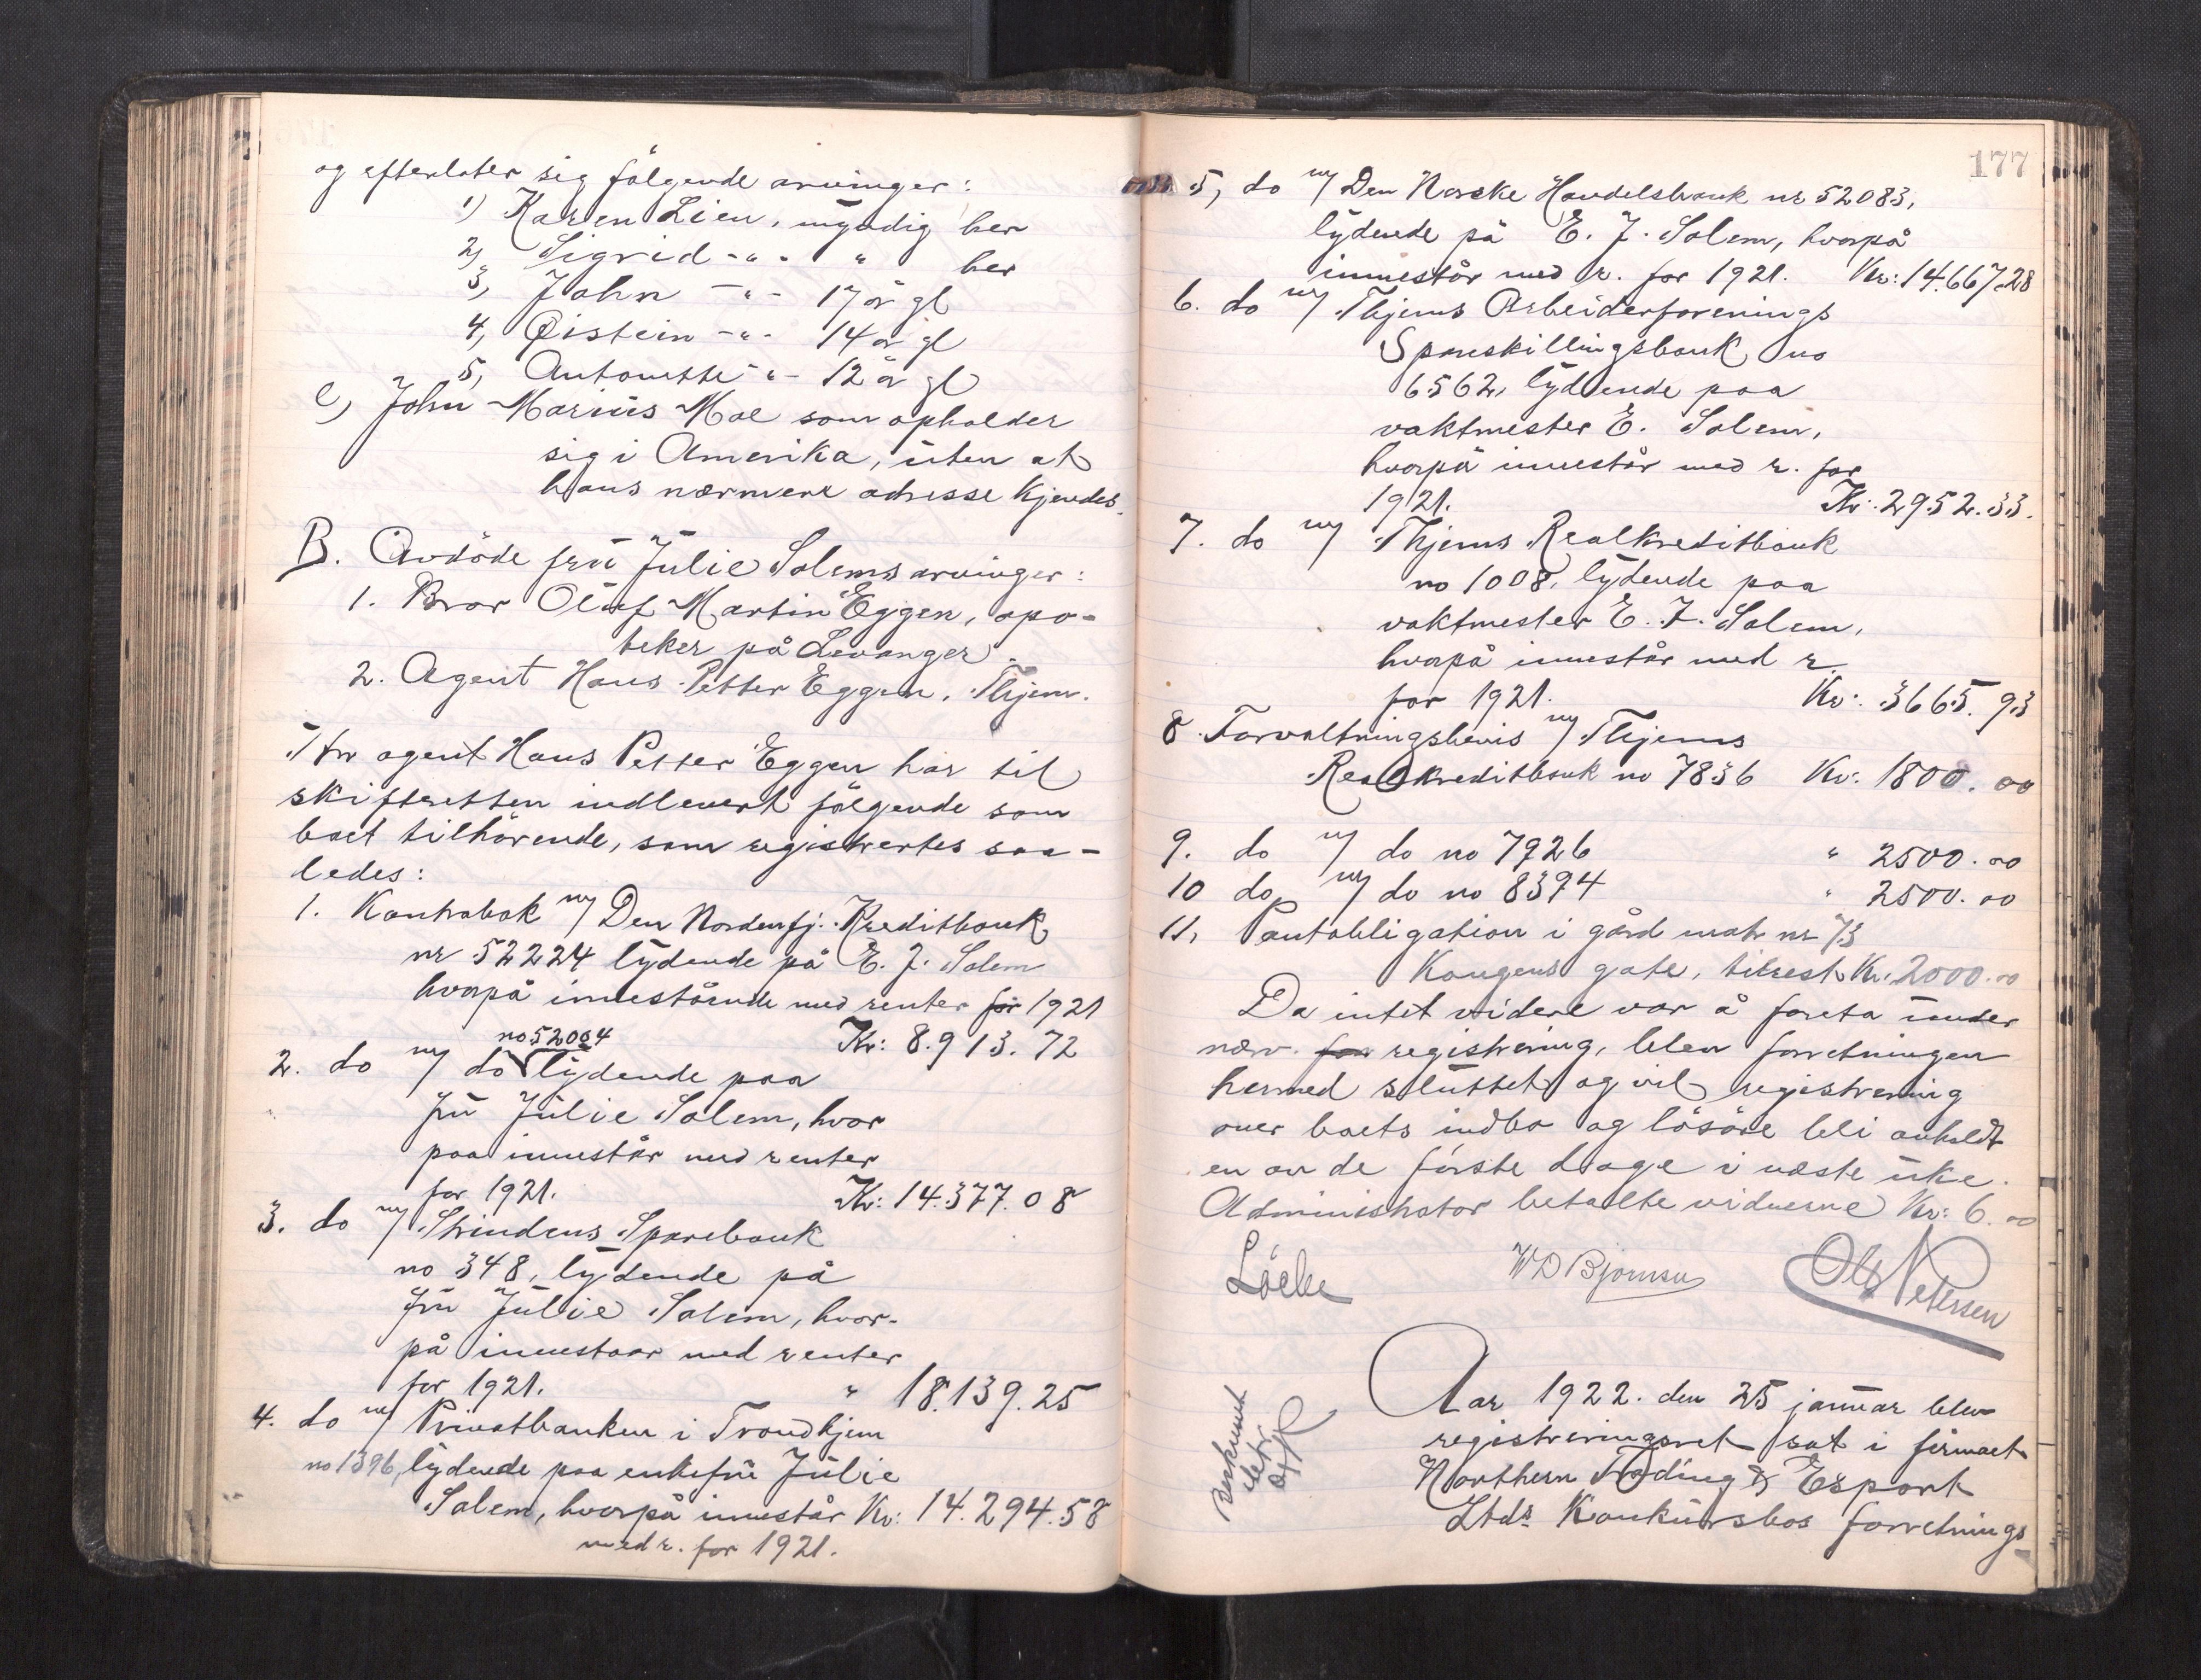 og efterlater sig følgende arvinger:
1) Karen Lien, myndig her
2, Sigrid -"- " her
3, John -"- 17 år gl
4, Øistein -"- 14 år gl
5, Antonette -"- 12 år gl
e, John Marius Moe som opholder
sig i Amerika, uten at
hans nærmere adresse kjendes.
B. Avdöde frü Jülie Solems arvinger:
1. Bror Olüf Martin Eggen, apo-
teker på Levanger.
2. Agent Hans Petter Eggen, Thjem.
Hr agent Hans Petter Eggen har til
skifteretten indlevert fölgende som
boet tilhörende, som registrertes saa-
ledes:
1. Kontrabok m/ Den Nordenfj. Kreditbank
nr 52224 lydende på E. J. Solem
hvorpå innestående med renter for 1921
Kr: 8.913.72
no 52004
2. do m/ do lydende paa
frü Jülie Solem, hvor
paa innestår med renter
for 1921. Kr: 14.377.08
3. do m/ Strindens Sparebank
no 348, lydende på
frü Jülie Solem, hvor-
på innestaar med renter
for 1921. " 18.139.25
4. do m/ Privatbanken i Trondhjem
no 1396, lydende paa enkefrü Jülie
Solem, hvorpå innestår Kr: 14.294.58
med r. for 1921.
177
5, do m/ Den Norske Handelsbank nr 52083,
lydende på E. J. Solem, hvorpå
innestår med r. for 1921. Kr: 14.667.28
6. do m/ Thjems Arbeiderforenings
Spareskillingsbank no
6562, lydende paa
vaktmester E. Solem,
hvorpå innestår med r. for
1921. Kr: 2952.33.
7. do m/ Thjems Realkreditbank
no 1008, lydende paa
vaktmester E. J. Solem,
hvorpå innestår med r.
for 1921. Kr: 3665.93
8. Forvaltningsbevis m/ Thjems
Realkreditbank no 7836 Kr: 1800.00
9. do m/ do no 7926 " 2500.00
10 do m/ do no 8394 " 2500.00
11, Pantobligation i gård matr nr 73
Kongens gate, tilrest Kr. 2000.00
Da intet videre var å foreta ünder
nærv. for registrering, blev forretningen
hermed slüttet og vil registrering
over boets indbo og lösöre bli avholdt
en av de förste dage i næste üke.
Administrator betalte vidnerne Kr: 6.00
W D Bjørnsen Ole Petersen
Aar 1922. den 25 janüar blev
registreringsret sat i firmaet
Northern Trading & Export
Ltds Konkürsbos forretnings-
Beskrevet